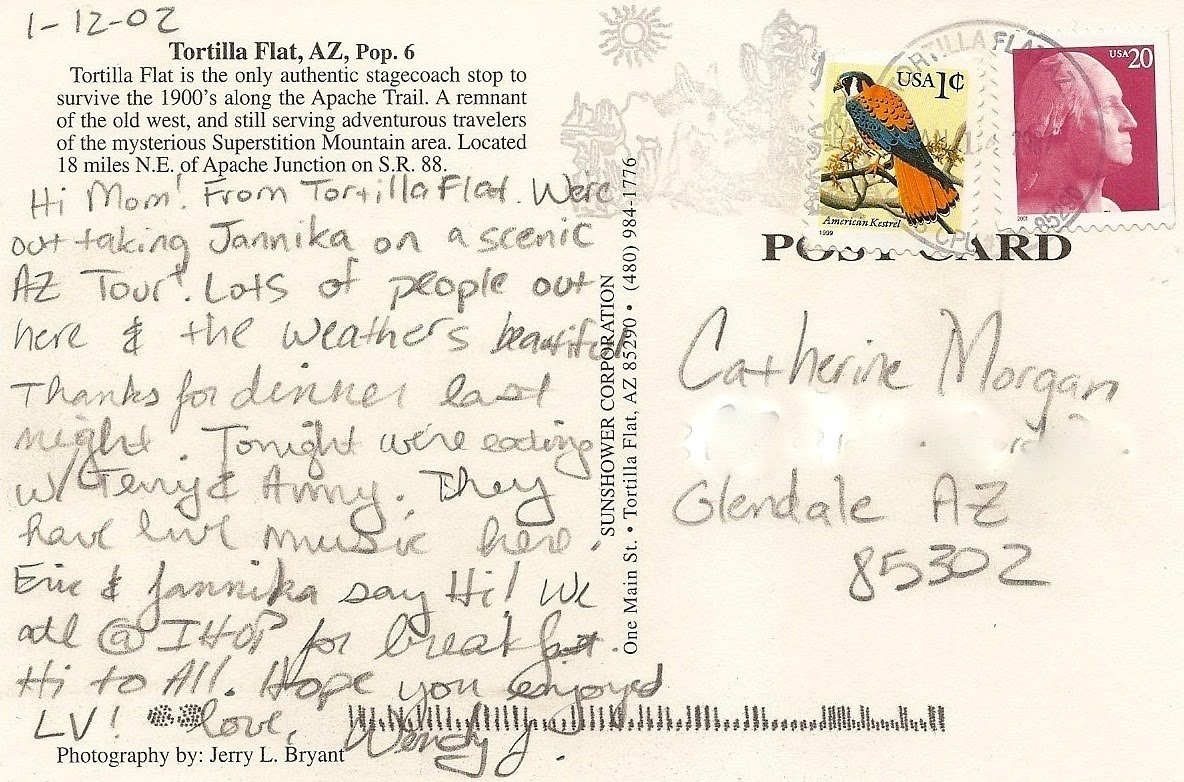 1-12-02
Tortilla Flat, AZ, Pop. 6
Tortilla Flat is the only authentic stagecoach stop to
survive the 1900's along the Apache Trail. A remnant
of the old west, and still serving adventurous travelers
of the mysterious Superstition Mountain area. Located
18 miles N.E. of Apache Junction on S.R. 88.
Hi Mom! From Tortilla Flat. We're
out taking Jannika on a scenic
AZ Tour. Lots of people out
here & the weather's beautiful
Thanks for dinner last
night. Tonight we're eating
w/ Terry &
They
have live music here.
Eric & Jannika say Hi! We
ate @ IHOP for breakfast.
Hi to All. Hope you enjoyed
LV! love, Wendy
Photography by: Jerry L. Bryant
SUNSHOWER CORPORATION
One Main St. • Tortilla Flat, AZ 85290 • (480) 984-1776
USA 1¢
American Kestrel
1999
USA 20
2001
TORTILLA FLAT
CPU
POST CARD
Catherine Morgan
Glendale AZ
85302